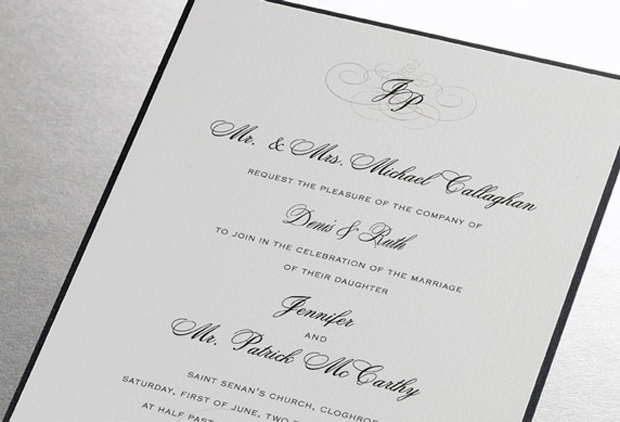 JP
Mr. & Mrs. Michael Callaghan
REQUEST THE PLEASURE OF THE COMPANY OF
Denis & Ruth
TO JOIN IN THE CELEBRATION OF THE MARRIAGE
OF THEIR DAUGHTER
Jennifer
AND
Mr. Patrick McCarthy
SAINT SENAN'S CHURCH, CLOGHRO
SATURDAY, FIRST OF JUNE, TWO
AT HALF PAST